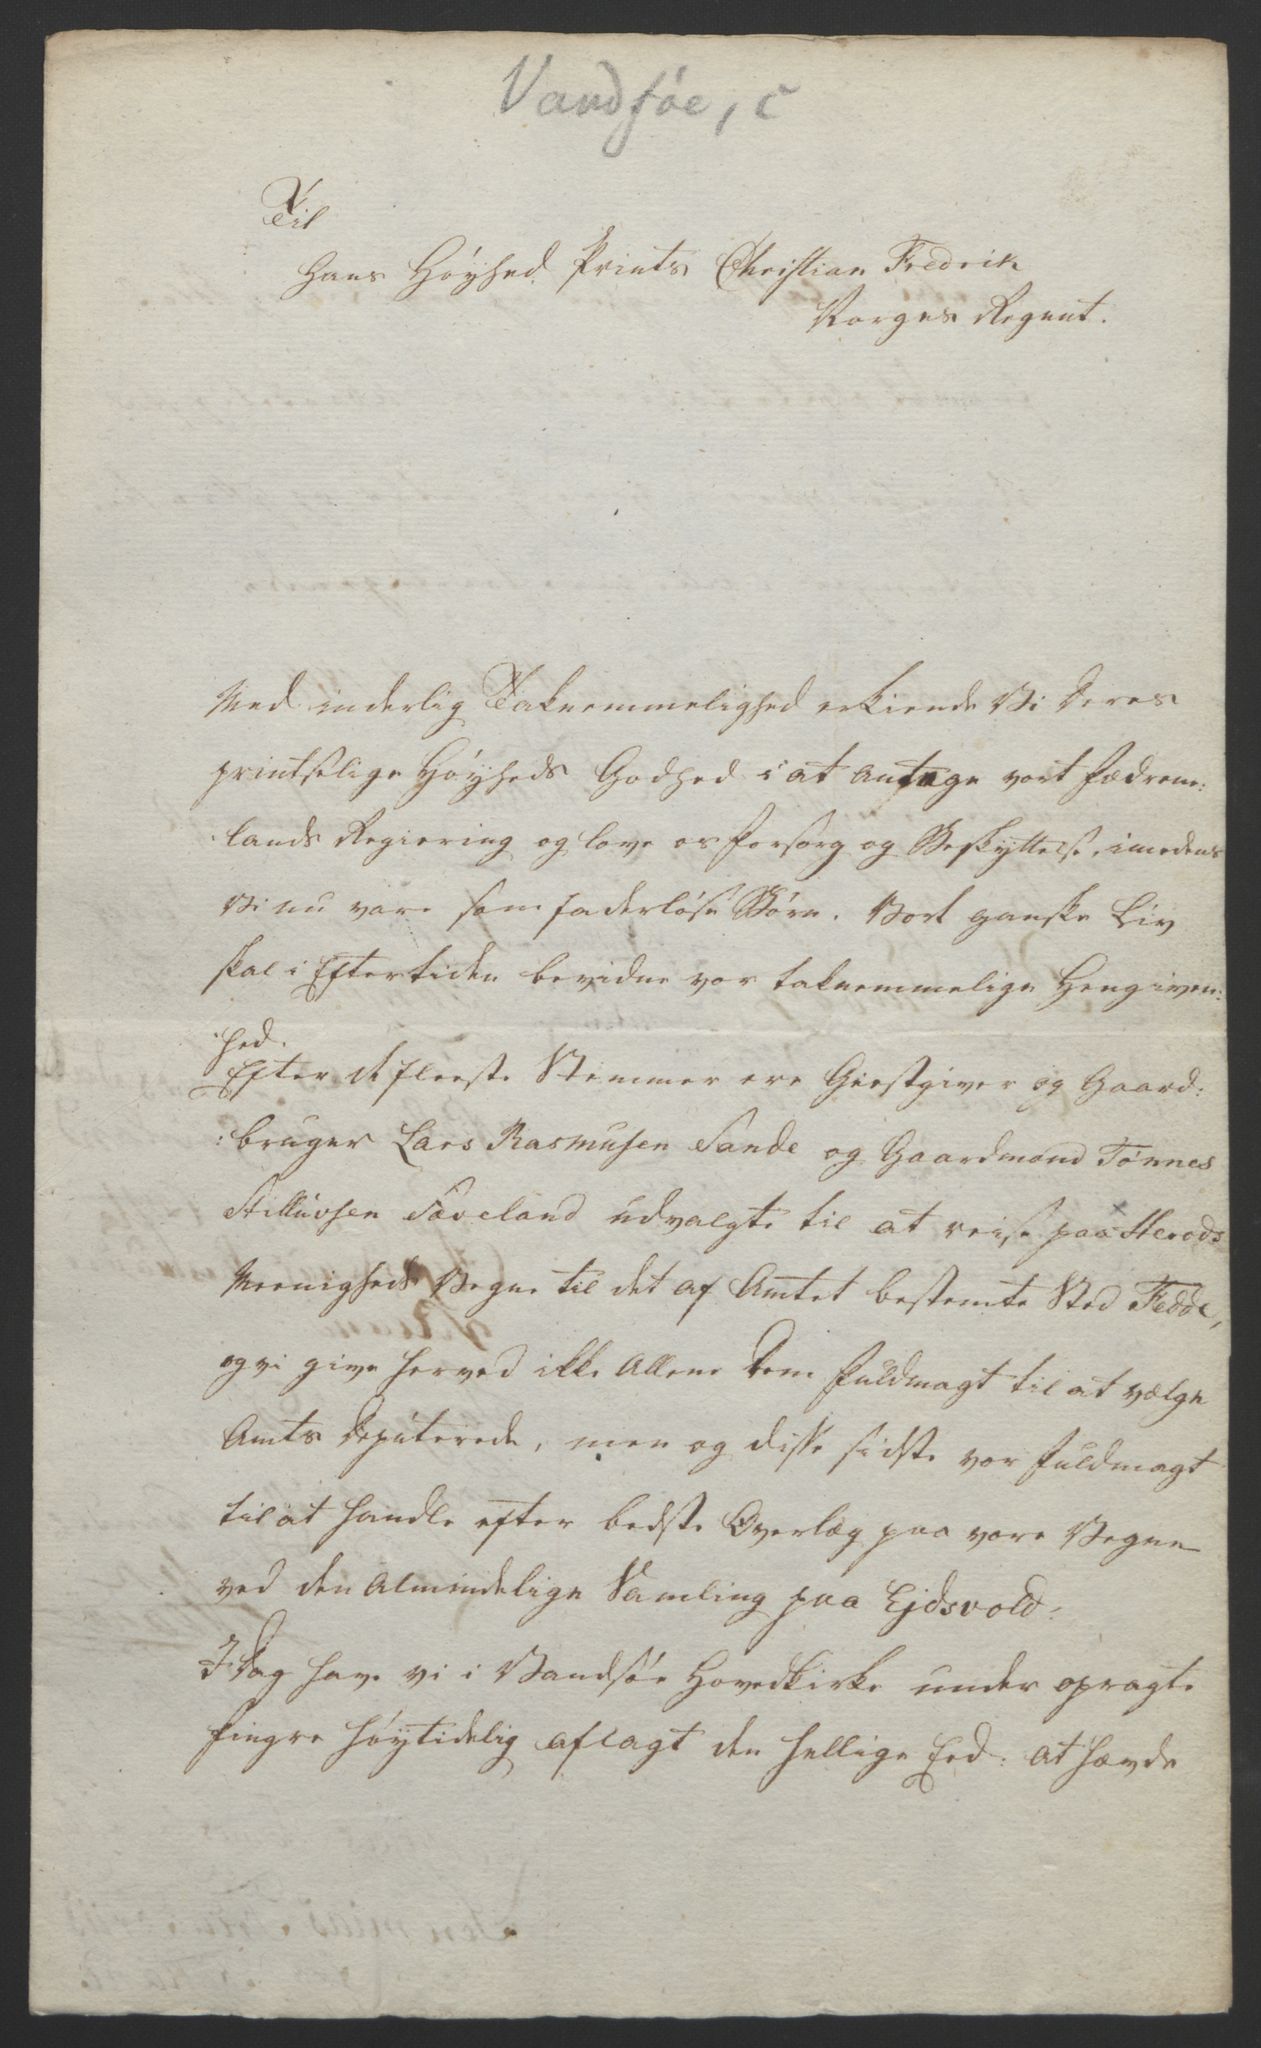 Vandsøe, c
Til
Hans Høyhed Prints Christian Fredrik
Norges Regent.
Med inderlig Taknemmelighed erkiende Vi Deres
printselige Høyheds Godhed i at antage vort Fædrene:
lands Regiering og love os Forsorg og Beskyttelse, imedens
Vi nu vare som faderløse Børn. Vort ganske Liv
skal i Eftertiden bevidne vor taknemmelige Hengiven:
hed.
Efter de fleeste Stemmer ere Giestgiver og Gaard:
:bruger Lars Rasmusen Sande og Gaardmand Tønnes
Stilluvsen Søveland udvalgte til at reise paa Herads
Meenigheds Vegne til det af Amtet bestemte Sted Fedde,
og vi give herved ikke Allene Dem Fuldmagt til at vælge
Amts Deputerede, men og disse sidste vor Fuldmagt
til at handle efter bedste Overlæg paa vore Vegne
ved den Almindelige Samling paa Ejdsvold.
I Dag have vi i Vandsøe Hovedkirke under opragte
Fingre høytidelig aflagt den hellige Eed: at hævde